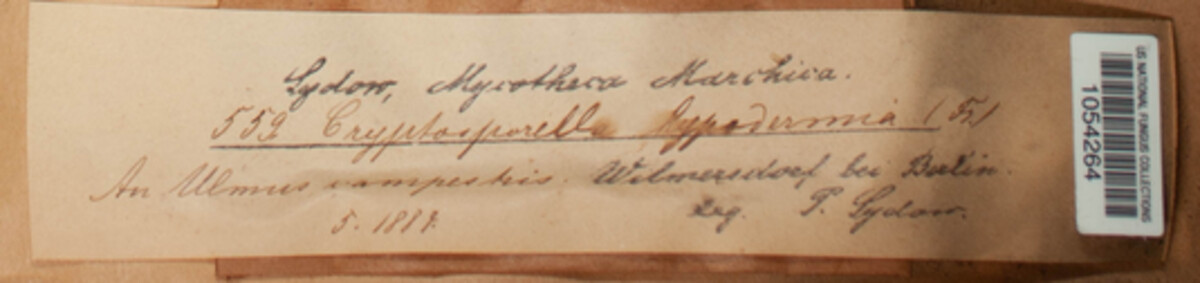 Sydow, Mycotheca Marchica.
552 Cryptosporella hypodermia (Fr.)
An Ulmus campestris. Wilmersdorf bei Berlin.
5. 1884. leg. P. Sydow.
US NATIONAL FUNGUS COLLECTIONS
1054264